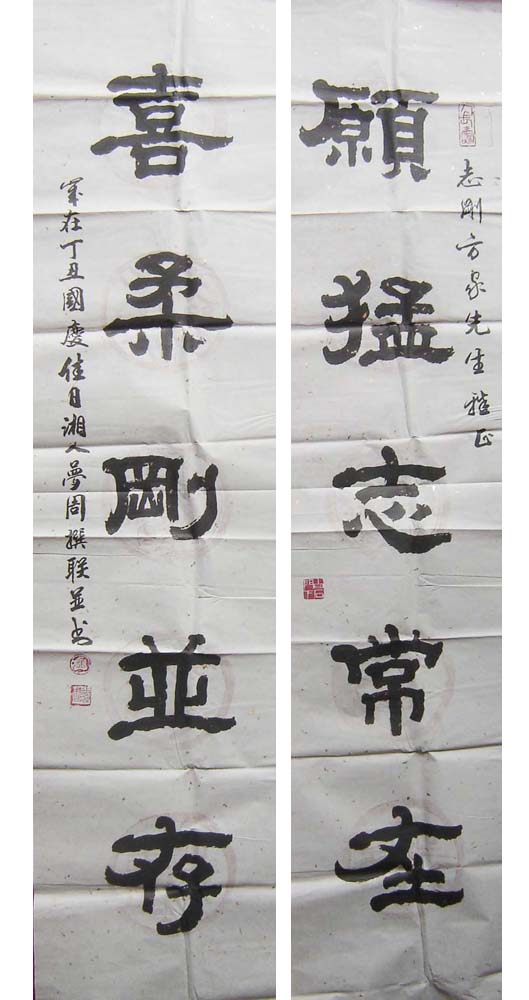 志剛方家先生雅正
願猛志常在
喜柔剛並存
歲在丁丑國慶佳日湘人夢周撰联並书